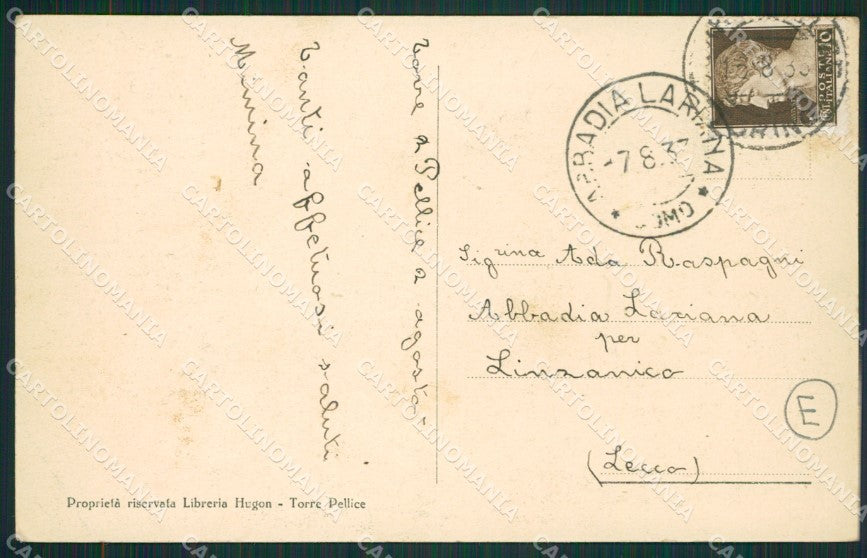 Torre Pellice 2 agosto
Tanti affettuosi saluti
Mimina
Sig.rina Ada Raspagni
Abbadia Lariana
per
Linzanico
(Lecco)
E
ABBADIA LARIANA
-7.8.37
* COMO *
POSTE
ITALIANE
Proprietà riservata Libreria Hugon - Torre Pellice
CARTOLINOMANIA